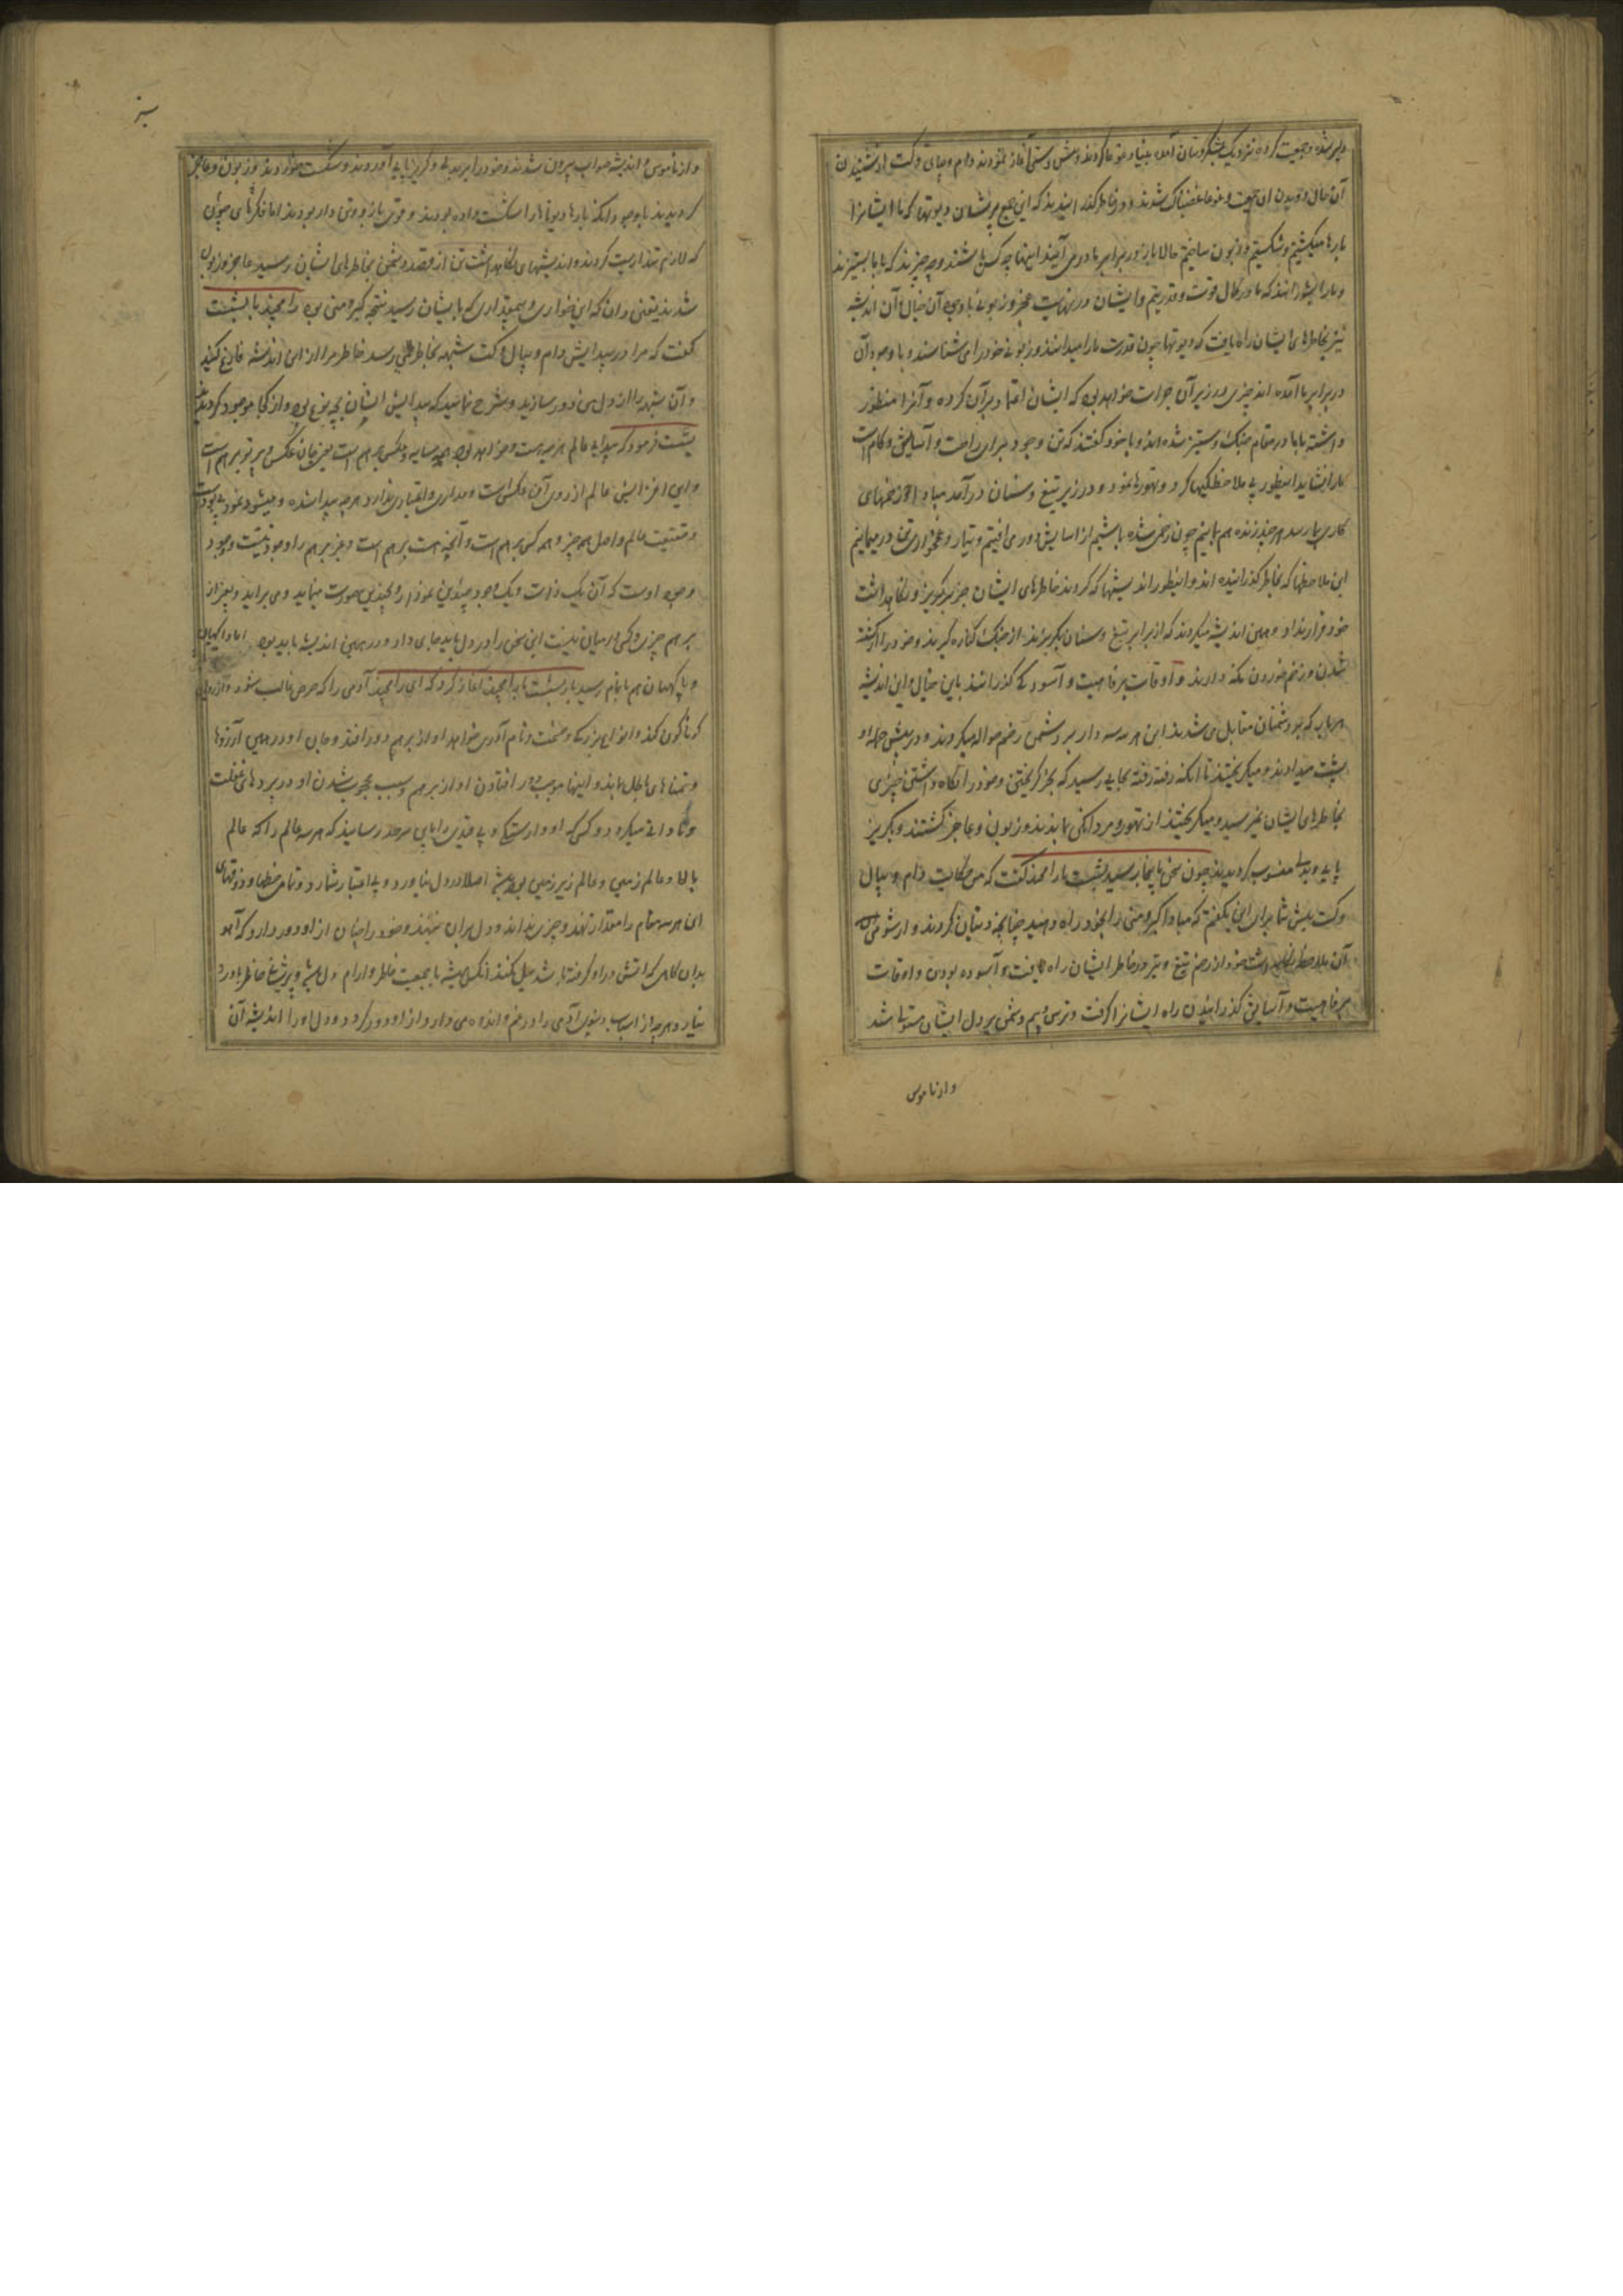 دلیر شده و جمعیت کرده نزدیک لشکر دیتان آمده بنیاد غوغا کردند و دام و بیال و کت از شنیدن
آن حال و دیدن آن غضبناک شدند و در خاطر گذرانیدند که این جمع پریشان دیوتها که ما ایشانرا
بارها میکشتیم و شکستیم و زبون ساختیم حالا باز در برابر ما در می آیند اینها چه کس باشند و چه چیزند که با ما بستیزند
و ما را میدانند که ما در کمال قوت و قدرتیم و ایشان در نهایت عجز و زبونی با وجود آن خیال آن اندیشه
نیز بخاطرهای ایشان راه یافت که دیوتها چون قدرت ما را میدانند و زبونی خود را می شناسند و با وجود آن
در برابر ما آمده اند چیزی در زیر آن جرات خواهد بود که ایشان اعتماد بر آن کرده و آنرا منظور
داشته با ما در مقام جنگ و ستیز شده اند و با خود گفتند که تن و وجود برای راحت و آسایش و کام است
ما را نشاید اینطور بی ملاحظگیها کرد و تهورها نمود و در زیر تیغ و سنان درآمد مبادا از زخمهای
کاری بما رسد هر چند زنده هم بمانیم چون زخمی شده باشیم از آسایش دور می افتیم و تیمار و غمخواری تن در میمانیم
این ملاحظها که بخاطر گذرانیده اند و اینطور اندیشها که کردند خاطرهای ایشان جز بگریز و نگاهداشت
خود قرار نداد و همین اندیشه میکردند که از برابر تیغ و سنان بگریزند از جنگ کناره گیرند و خود را از کشته
شدن و زخم خوردن نگه دارند و اوقات برفاهیت و آسودگی گذرانند باین خیال و این اندیشه
هر بار که بدشمنان مقابل می شدند این هر سه سردار بر دشمن زخم حواله میکردند و در پیش حمله او
پشت میدادند و میگریختند تا آنکه رفته رفته بجایی رسید که بجز گریختن و خود را نگاه داشتن چیزی
بخاطرهای ایشان نمیرسید و میگریختند از تهور و مردانگی ماندند و زبون و عاجز گشتند و بگریز
پایی و بددلی منسوب گردیدند چون سخن باینجا رسید بشست با رامچند گفت که من حکایت دام و بیال
و کت پیش شما برای این گفتم که مبادا کبر و منی را بخود راه دهید چنانچه دیتان کردند و از شومی
آن ملاحظه نگاهداشت خود از زخم تیغ و تیر در خاطر ایشان راه یافت و آسوده بودن و اوقات
برفاهیت و آسایش گذرانیدن راه ایشانرا گرفت و ترس و بیم دشمن بر دل ایشان مستولی شد
و از ناموس
و از ناموس و اندیشه صواب بیرون شدند و خود را ببددلی و گریزپایی آوردند و شکست خوردند و زبون و عاجز
گردیدند با وجود آنکه بارها دیوتها را شکست داده بودند و قوی بازو و تن دار بودند اما فکرهای چون
که لازم پندار است کردند و اندیشهای نگاهداشت تن از قصد دشمن بخاطرهای ایشان رسید عاجز و زبون
شدند یقین دان که این خواری و بیمقداری که بایشان رسید نتیجه کبر و منی بود رامچند با بشست
گفت که مرا در پیدایش دام و بیال و کت شبهه بخاطر می رسد خاطر مرا از این اندیشه فارغ کنید
و آن شبهه را از دل من دور سازید و شرح نمائید که پیدایش ایشان بچه نوع بود و از کجا موجود گردیدند
بشست فرمود که پیدایی عالم هر چه هست و خواهد بود همه سایه و عکس برهم است یعنی جان عکس و پرتو برهم است
و این افزایش عالم از روی آن عکس است و مداری و اعتباری ندارد هر چه پیدا شده و میشود نمود بی بود است
و حقیقت عالم و اصل همه چیز و همه کس برهم است و آنچه هست برهم است و غیر برهم را وجود نیست وجود
وجود اوست که آن یک ذات و یک وجود چندین نمودها و بچندین صورت مینماید و می برآید و بغیر از
برهم چیزی و کسی در میان نیست این سخن را در دل باید جای داد و در همین اندیشه باید بود
هم باتمام رسید باز بشست با رامچند آغاز کرد که ای رامچند آدمی را که حرص غالب شود و آرزوی
گوناگون کند و انواع بزرگی و حشمت و نام آوری خواهد او از برهم دور افتد و جان او در همین آرزوها
و تمناهای باطل ماند و اینها موجب دور افتادن او از برهم و سبب محجوب شدن او در پردهای غفلت
و نادانی میگردد و کسی که او وارستگی و بی قیدی را بجایی سرحد رسانید که هر سه عالم را که عالم
بالا و عالم زمین و عالم زیرزمین بود همیشه اصلا در دل نیاورد و بی اعتبار شمارد و تمامی حظها و ذوقهای
این هر سه مقام را مقدار ننهد و چیزی نداند و دل بر آن نبندد و خود را چنان از او دور دارد که آهو
بدان گیاهی که آتش در او گرفته باشد میل نکند آنکس همیشه با جمعیت خاطر و آرام دل باشد و پریشانی خاطر باو رو
نیارد و هر چه از اسباب دنیوی آدمی را در غم و اندوه می دارد از او دور گردد و دل او را اندیشه آن